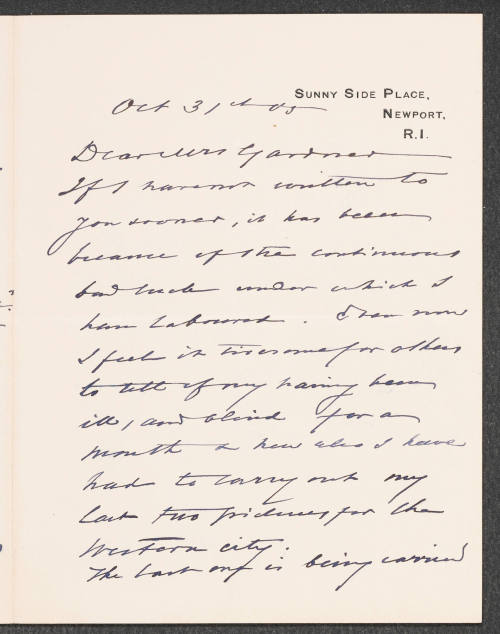 SUNNY SIDE PLACE,
NEWPORT,
R.I.
Oct 31st 05
Dear Mrs Gardner
If I have not written to
you sooner, it has been
because of the continuous
bad luck under which I
have laboured. Even now
I feel it tiresome for others
to tell of my having been
ill, and blind for a
month & how also I have
had to carry out my
last two pictures for the
Western city.
The last one is being carried